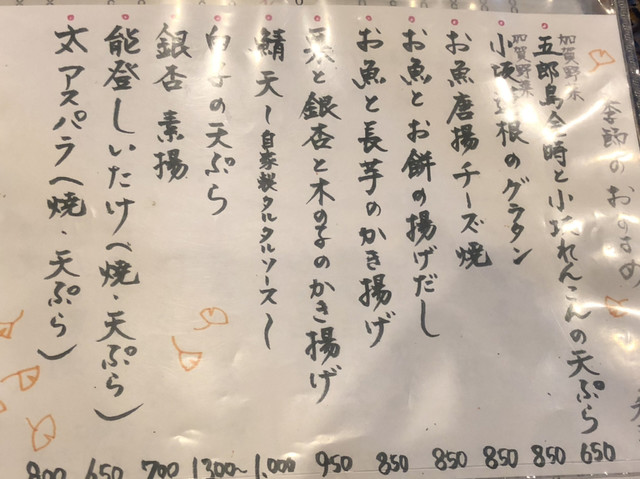 季節のおすすめ
加賀野菜
五郎島金時と小坂れんこんの天ぷら 650
加賀野菜
小坂蓮根のグラタン 850
お魚唐揚チーズ焼 850
お魚とお餅の揚げだし 850
お魚と長芋のかき揚げ 850
栗と銀杏と木の子のかき揚げ 950
鯖天〜自家製タルタルソース〜 1,000
白子の天ぷら 1300〜
銀杏 素揚 700
能登しいたけ(焼・天ぷら) 650
太アスパラ(焼・天ぷら) 800